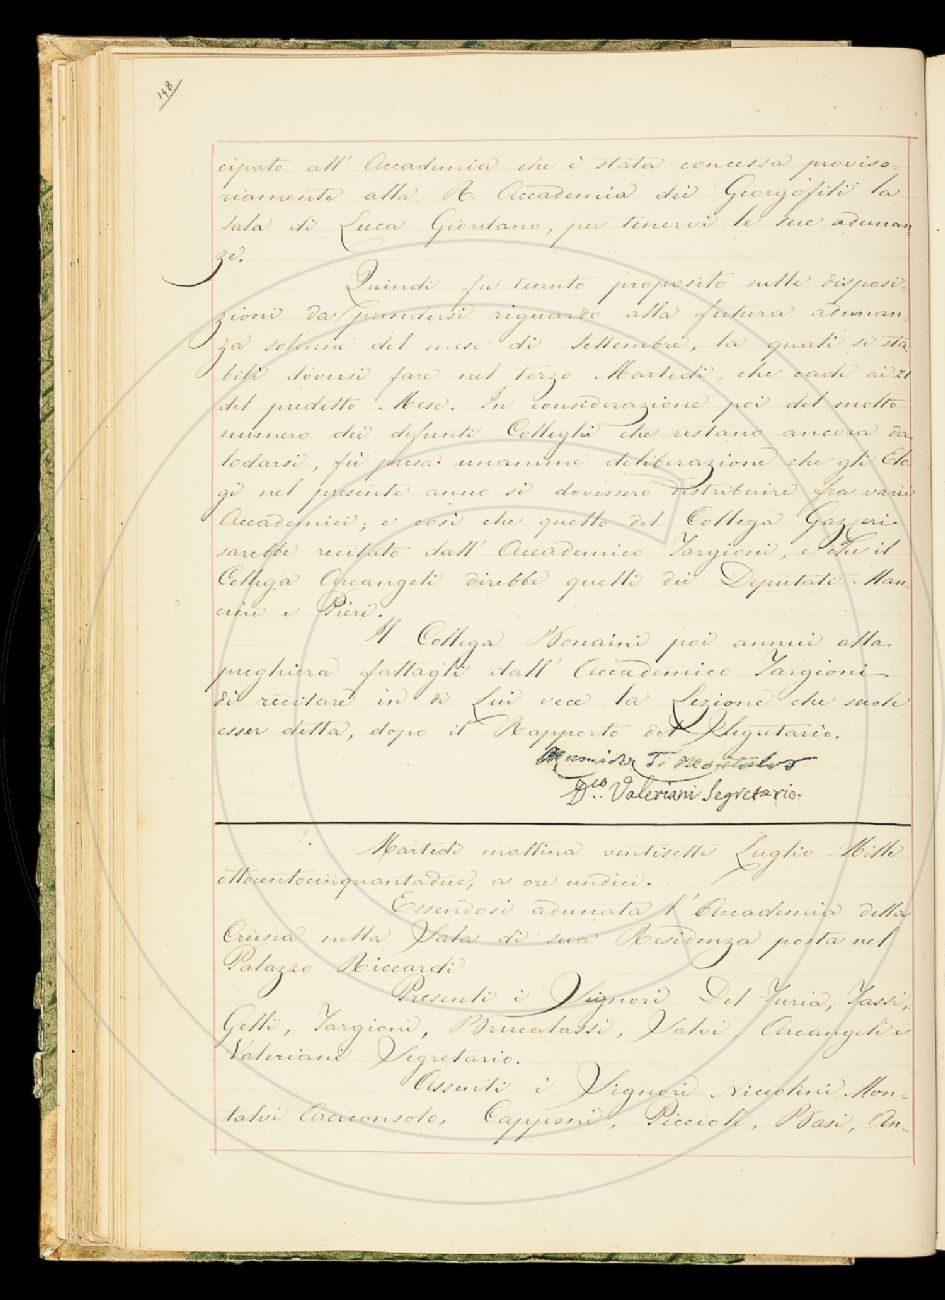 148
cipato all' Accademia che è stata concessa provviso=
riamente alla R. Accademia dei Georgofili la
Sala di Luca Giordano, per tenervi le sue adunan
ze.
Quindi fu tenuto proposito sulle disposi=
zioni da prendersi riguardo alla futura adunan=
za solenne del mese di Settembre, la quale si sta
bilì doversi fare nel terzo Martedì, che cade ai 21
del predetto Mese. In considerazione poi del molto
numero dei defunti Colleghi che restano ancora da
lodarsi, fù presa unanime deliberazione che gli Elo
gi nel presente anno si dovessero distribuire fra varii
Accademici; e così che quello del Collega Gazzeri
sarebbe recitato dall' Accademico Targioni, e che il
Collega Arcangeli direbbe quelli dei Deputati Man=
cini e Pieri.
Il Collega Bonaini poi annuì alla
preghiera fattagli dall' Accademico Targioni
di recitare in di Lui vece la Lezione che suole
esser detta, dopo il Rapporto del Segretario.
Dco. Valeriani Segretario.
Martedì mattina ventisette Luglio Mille
ottocentocinquantadue, a ore undici.
Essendosi adunata l' Accademia della
Crusca nella Sala di sua Residenza posta nel
Palazzo Riccardi
Presenti i Signori Del Furia, Tassi,
Gelli, Targioni, Brucalassi, Salvi, Arcangeli e
Valeriani Segretario.
Assenti i Signori Niccolini, Mon=
talvi Arciconsolo, Capponi, Piccioli, Basi, An=